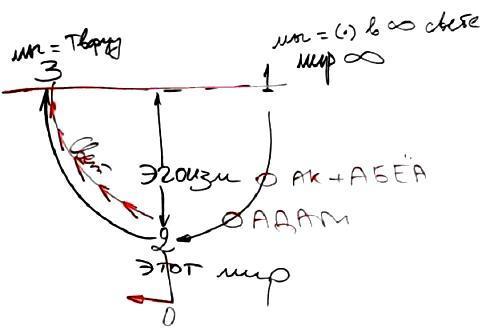 мы = Творцу
мы = (•) в ∞ свете
мир ∞
3
1
свет
эгоизм
О АК + АБЕЁА
О АДАМ
2
этот мир
0